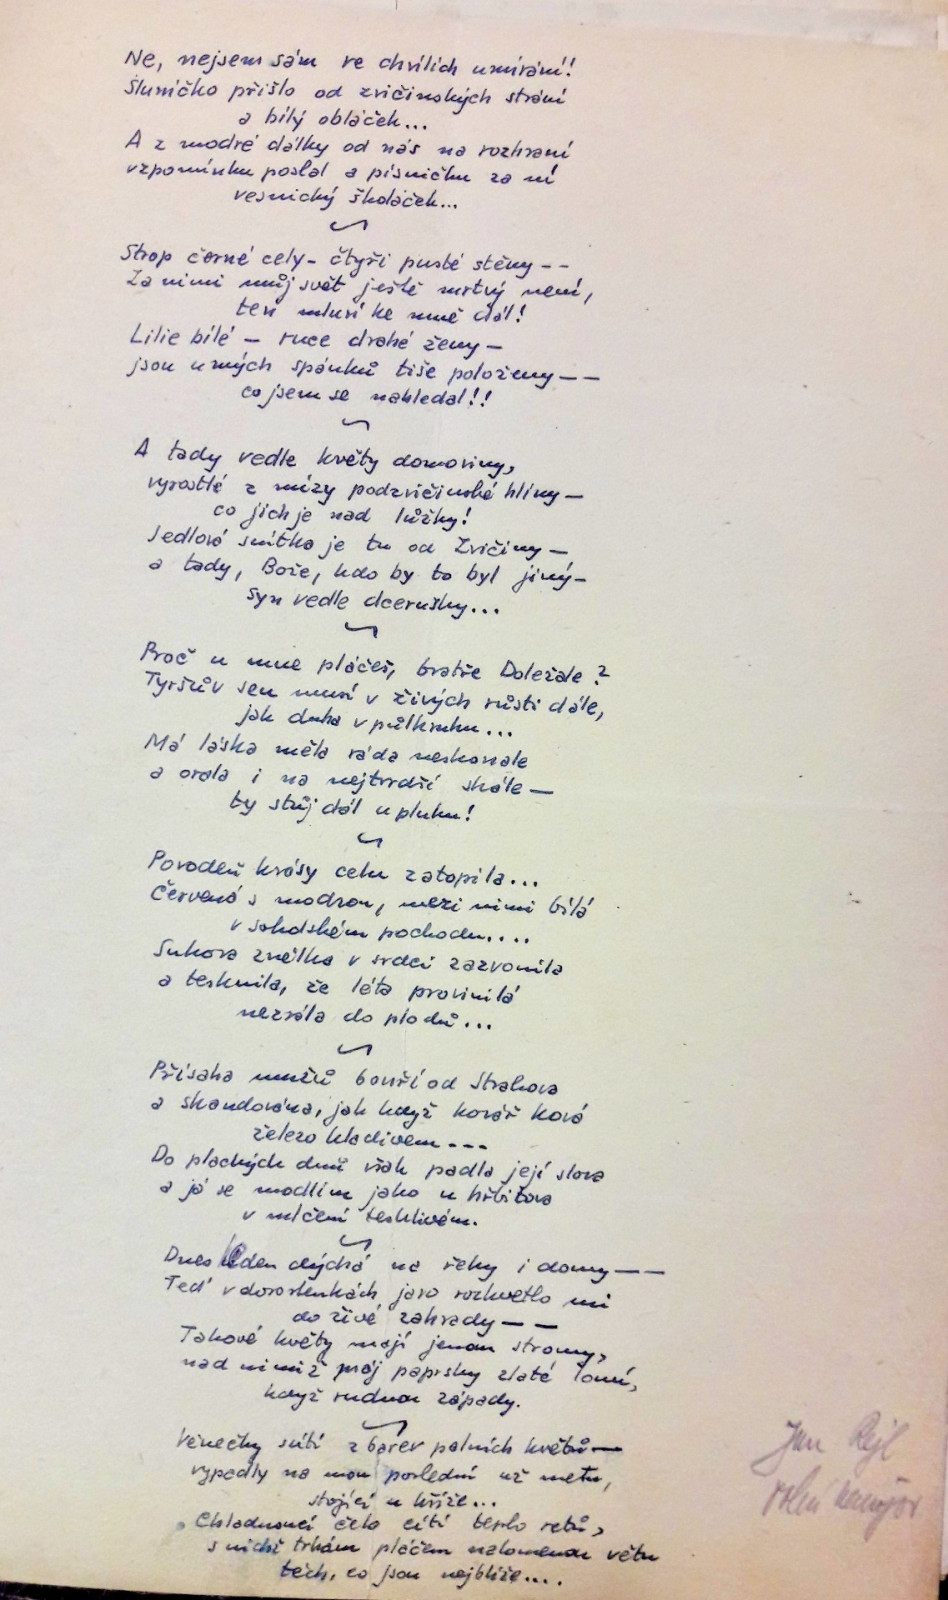 Ne, nejsem sám ve chvílích umírání!
Sluníčko přišlo od zvičinských strání
a bílý obláček...
A z modré dálky od nás na rozhraní
vzpomínku poslal a písničku za ní
vesnický školáček...
Strop černé cely - čtyři pusté stěny --
Za nimi můj svět ještě mrtvý není,
ten mluví ke mně dál!
Lilie bílé - ruce drahé ženy -
jsou u mých spánků tiše položeny --
co jsem se nahledal!!
A tady vedle květy domoviny,
vyrostlé z mízy podzvičinské hlíny -
co jich je nad lůžky!
Jedlová snítka je tu od Zvičiny -
a tady, Bože, kdo by to byl jiný -
syn vedle dcerušky...
Proč u mne pláčeš, bratře Doležale?
Tyršův sen musí v živých růsti dále,
jak duha v půlkruhu...
Má láska měla ráda neskonale
a orala i na nejtvrdší skále -
ty stůj dál u pluhu!
Povodeň krásy celu zatopila...
Červená s modrou, mezi nimi bílá
v sokolském pochodu....
Sukova znělka v srdci zazvonila
a tesknila, že léta provinilá
nezrála do plodů...
Přísaha mužů bouří od Strahova
a skandována, jak když kovář ková
železo kladivem---
Do plachých dnů však padla její slova
a já se modlím jako u hřbitova
v mlčení tesklivém.
Dnes leden dýchá na řeky i domy --
Teď v dorostenkách jaro rozkvetlo mi
do živé zahrady --
Takové květy mají jenom stromy,
nad nimiž máj paprsky zlaté lomí,
když rudnou západy.
Věnečky snítí z barev polních květů -
vypadly na mou poslední už metu,
stojící u kříže...
Chladnoucí čelo cítí teplo retů,
s nichž trhám pláčem nalomenou větu
těch, co jsou nejblíže....
Jan Rejl